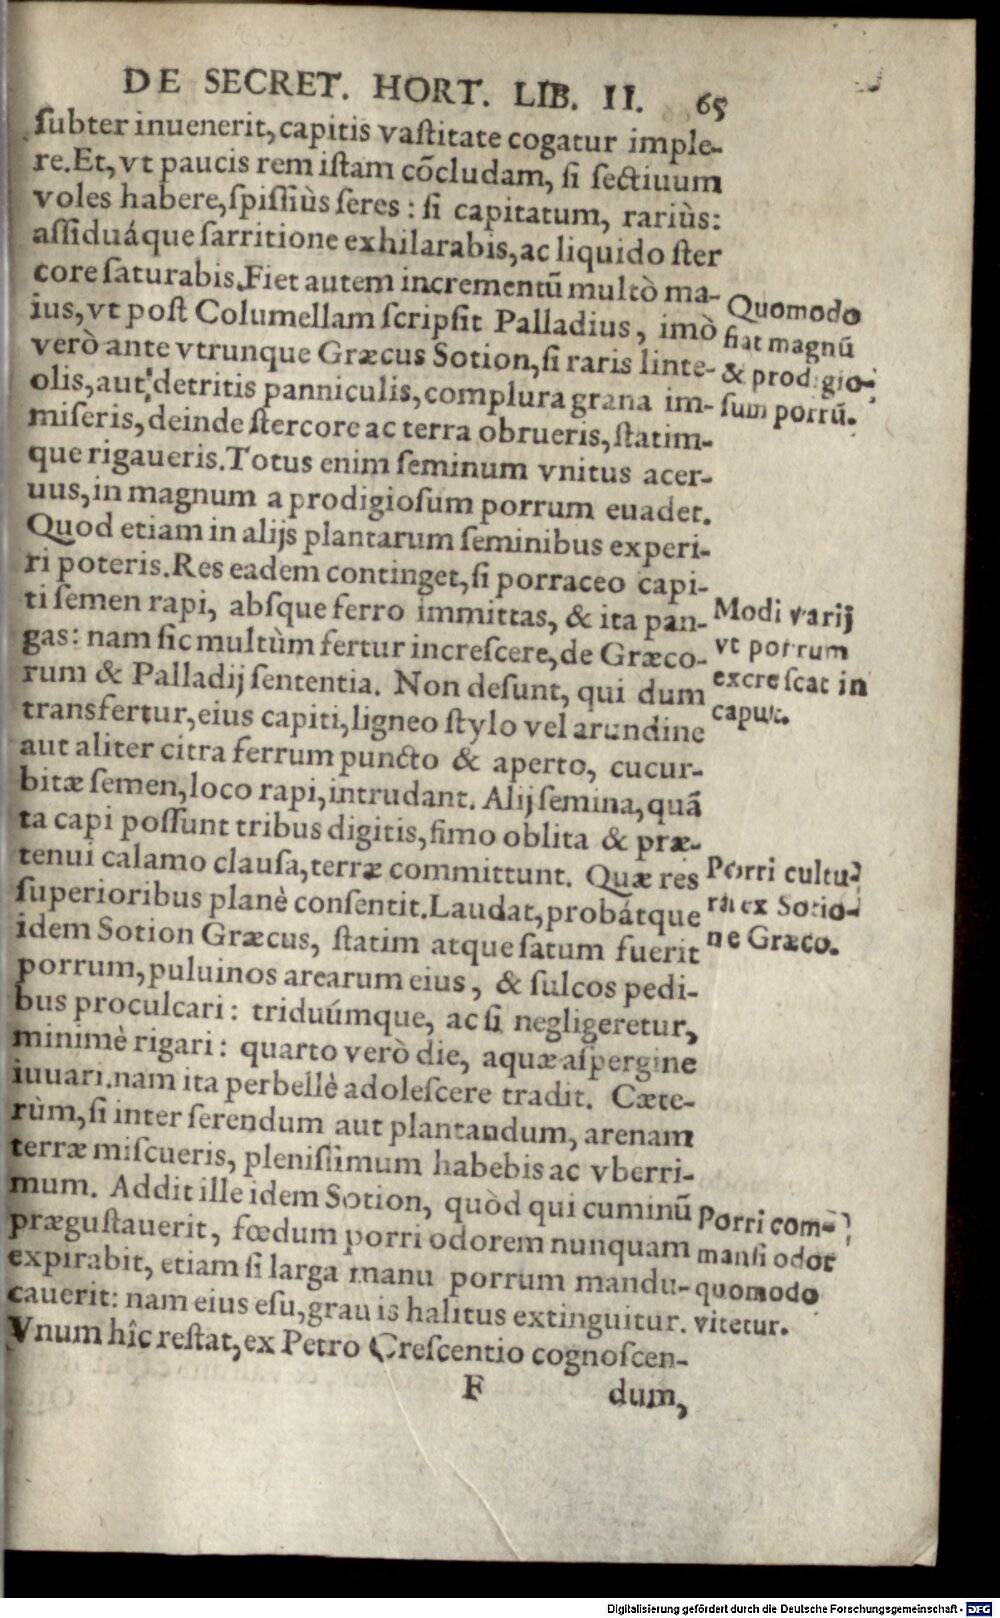 DE SECRET. HORT. LIB. II. 65
ſubter inuenerit, capitis vaſtitate cogatur imple-
re. Et, vt paucis rem iſtam cõcludam, ſi ſectiuum
voles habere, ſpiſſiùs ſeres : ſi capitatum, rariùs:
aſſiduáque ſarritione exhilarabis, ac liquido ſter
core ſaturabis. Fiet autem incrementũ multò ma-
ius, vt poſt Columellam ſcripſit Palladius, imò
verò ante vtrunque Græcus Sotion, ſi raris linte-
olis, aut detritis panniculis, complura grana im-
miſeris, deinde ſtercore ac terra obrueris, ſtatim-
que rigaueris. Totus enim ſeminum vnitus acer-
uus, in magnum a prodigioſum porrum euadet.
Quod etiam in alijs plantarum ſeminibus experi-
ri poteris. Res eadem continget, ſi porraceo capi-
ti ſemen rapi, abſque ferro immittas, & ita pan-
gas: nam ſic multùm fertur increſcere, de Græco-
rum & Palladij ſententia. Non deſunt, qui dum
transfertur, eius capiti, ligneo ſtylo vel arundine
aut aliter citra ferrum puncto & aperto, cucur-
bitæ ſemen, loco rapi, intrudant. Alij ſemina, quã
ta capi poſſunt tribus digitis, fimo oblita & præ-
tenui calamo clauſa, terræ committunt. Quæ res
ſuperioribus planè conſentit. Laudat, probátque
idem Sotion Græcus, ſtatim atque ſatum fuerit
porrum, puluinos arearum eius, & ſulcos pedi-
bus proculcari : triduúmque, ac ſi negligeretur,
minimè rigari : quarto verò die, aquæ aſpergine
iuuari. nam ita perbellè adoleſcere tradit. Cæte-
rùm, ſi inter ſerendum aut plantandum, arenam
terræ miſcueris, pleniſſimum habebis ac vberri-
mum. Addit ille idem Sotion, quòd qui cuminũ
præguſtauerit, fœdum porri odorem nunquam
expirabit, etiam ſi larga manu porrum mandu-
cauerit: nam eius eſu, grauis halitus extinguitur.
Vnum hîc reſtat, ex Petro Creſcentio cognoſcen-
F dum,
Quomodo
fiat magnũ
& prodigio-
ſum porrũ.
Modi varij
vt porrum
excreſcat in
caput.
Porri cultu-
ra ex Sotio-
ne Græco.
Porri com-
manſi odor
quomodo
vitetur.
Digitalisierung gefördert durch die Deutsche Forschungsgemeinschaft - DFG